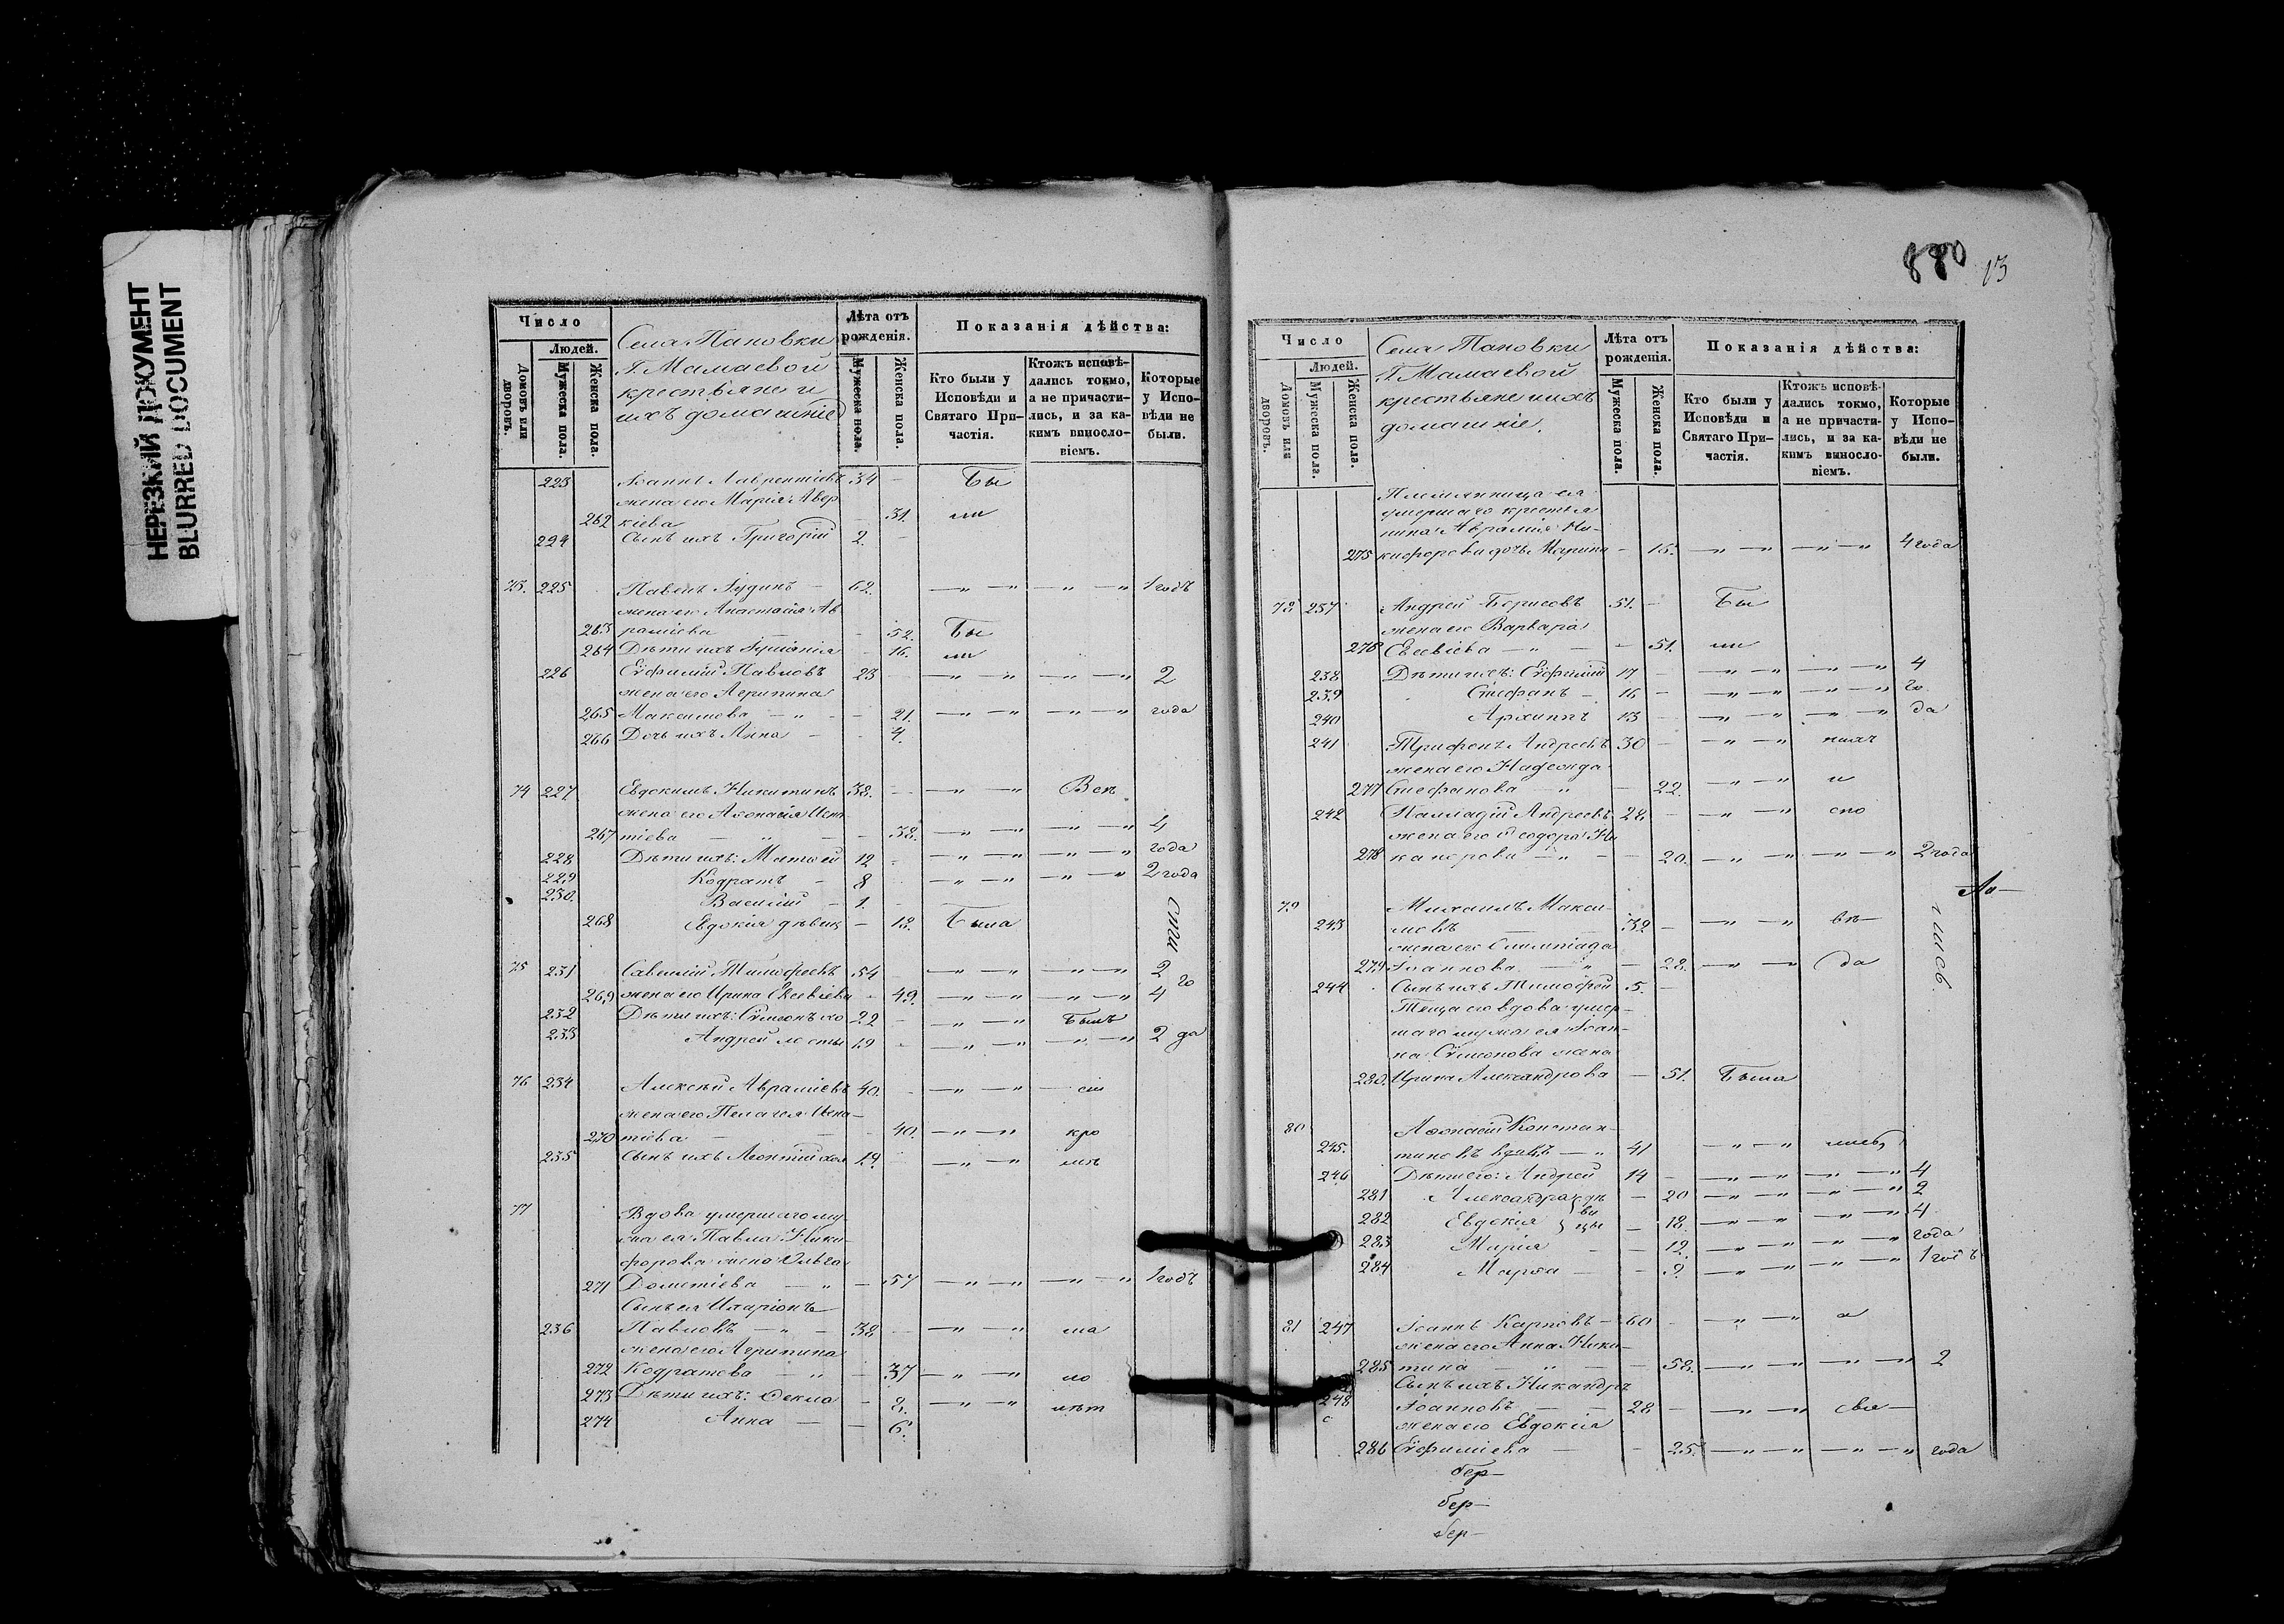 НЕРЕЗКИЙ ДОКУМЕНТ
BLURRED DOCUMENT
Число
Людей.
Домовъ или дворовъ.
Мужеска пола.
Женска пола.
Села Пановки
Г. Мамаевой
крестьяне и
ихъ домашніе
Лѣта отъ рожденія.
Мужеска пола.
Женска пола.
Показанія дѣйства:
Кто были у Исповѣди и Святаго Причастія.
Ктожъ исповѣдались токмо, а не причастились, и за какимъ винословіемъ.
Которые у Исповѣди не были.
223 Іоаннъ Лаврентіевъ 34 - Бы
жена его Марія Авер
262 кіева - 31. ли
224 Сынъ ихъ Григорій 2. -
73. 225 Павелъ Іудинъ - 62. 1 годъ
жена его Анастасія Ав
263 раміева - 52. Бы
264 Дѣти ихъ Іуліанія - 16. ли
226 Евфимій Павловъ 23 - 2
жена его Агрипина
265 Максимова - 21. года
266 Дочь ихъ Анна - 4.
74 227 Евдокимъ Никитинъ 38. - Всѣ
жена его Аѳонасія Игна
267 тіева - 38. 4
228 Дѣти ихъ: Матѳей 12 - года
229 Кодратъ - 8 2 года
230. Василій - 1.
268 Евдокія дѣвиц - 13. Была
75 231 Савелій Тимофеевъ 54 - 2
269 жена его Ирина Евсевіева - 49. 4 го
232 Дѣти ихъ: Симеонъ хо 22 - Былъ
233 Андрей лосты 19 - 2 да
76 234 Алексѣй Авраміевъ 40. -
жена его Пелагея Игна-
270 тіева - 40. кро
235 Сынъ ихъ Леонтій хол 19. -
77 Вдова умершаго му-
жа ея Павла Ники-
форова жена Ольга
271 Дометіева - 57 1 годъ
Сынъ ея Иларіонъ
236 Павловъ - 38 - ма
жена его Агрипина
272 Кодратова - 37 ло
273 Дѣти ихъ: Ѳекла - 8. лѣт
274 Анна - 6.
880 13
Число
Людей.
Домовъ или дворовъ.
Мужеска пола.
Женска пола.
Села Пановки
Г. Мамаевой
крестьяне и ихъ
домашніе.
Лѣта отъ рожденія.
Мужеска пола.
Женска пола.
Показанія дѣйства:
Кто были у Исповѣди и Святаго Причастія.
Ктожъ исповѣдались токмо, а не причастились, и за какимъ винословіемъ.
Которые у Исповѣди не были.
Племянница ея
умершаго крестья
нина Аврамія Ни-
275 кифорова дочь Марина - 16. 4 года
78 237 Андрей Борисовъ 51. - Бы
жена его Варвара
276 Евсевіева - 51. ли
238 Дѣти ихъ: Евфимій 17 - 4
239 Стефанъ - 16 - го
240 Архиппъ 13 - да
241 Трифонъ Андреевъ 30 -
жена его Надежда
277 Стефанова - 22. и
242 Палладій Андреевъ 28 - спо
жена его Ѳеодора Ни
278 канорова - 20. 2 года
79 Михаилъ Макси-
243 мовъ 32 - вѣ-
жена его Олимпіада
279 Іоаннова - 28. да
244 Сынъ ихъ Тимофей 5. -
Теща его вдова умер-
шаго мужа ея Іоан-
на Симонова жена
280. Ирина Александрова - 51. Была
80 Аѳонасій Констан-
245. тиновъ вдовъ 41
246 Дѣти его: Андрей 14 - 4
281 Александра дѣ - 20 2
282 Евдокія ви цы - 18. 4
283 Марія - 12. года
284 Марѳа - 9. 1 годъ
81 247 Іоаннъ Карповъ - 60 - а
жена его Анна Ники-
285 тина - 58. 2
Сынъ ихъ Никандръ
248 Іоанновъ 28 -
жена его Евдокія
286 Евфиміева - 25. года
бер-
бер-
бер-